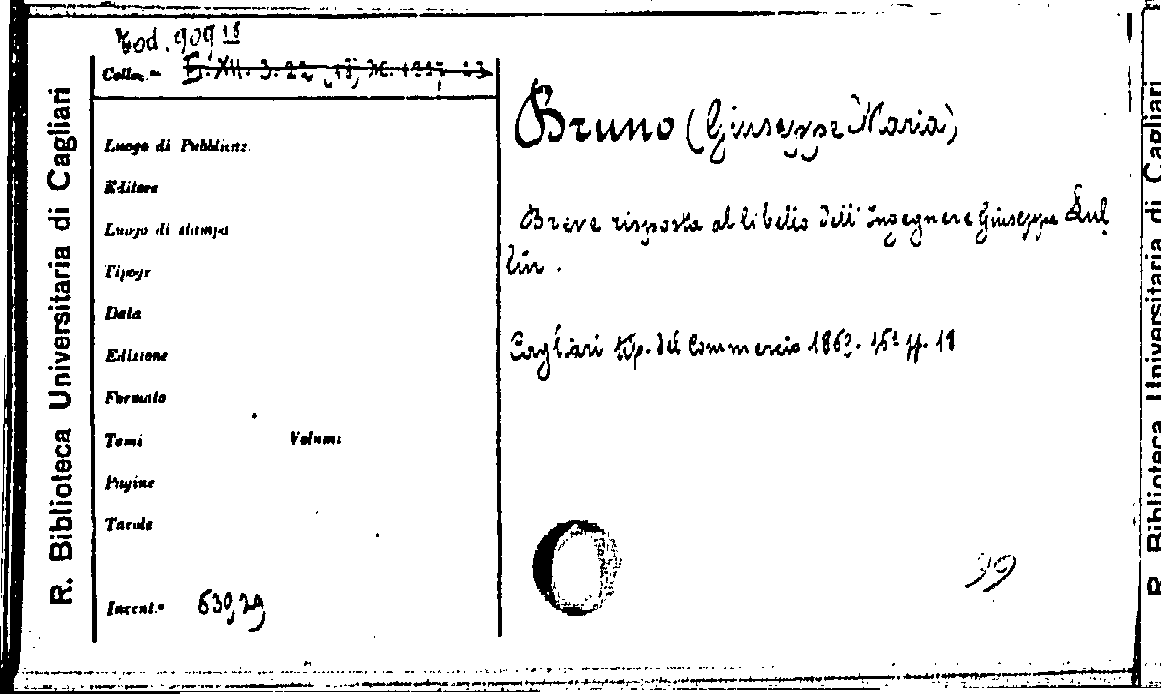 Cod. 909 18
Colloc.ne
R. Biblioteca Universitaria di Cagliari
Luogo di Pubblicaz.
Editore
Luogo di stampa
Tipogr
Data
Edizione
Formato
Tomi Volumi
Pagine
Tavole
Invent.e 63929
Bruno (Giuseppe Maria)
Breve risposta al libello dell' Ingegnere Giuseppe Sul
lin.
Cagliari tip. del Commercio 1863. 16° pp. 18
99
R. Biblioteca Universitaria di Cagliari